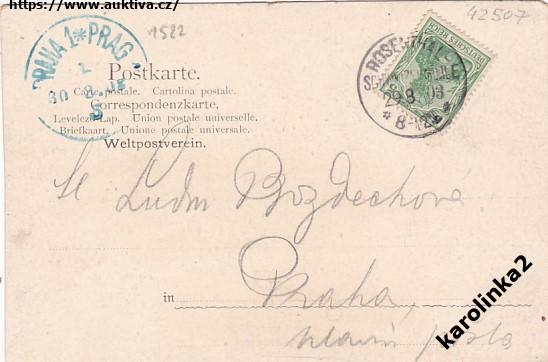 https://www.auktiva.cz/
1522
42507
PRAHA 1 * PRAG
30
ROSENTHAL
29.8.03
* 8-
DEUTSCHES REICH
Postkarte.
Carte postale. Cartolina postale.
Correspondenzkarte.
Levelező-Lap. Union postale universelle.
Briefkaart. Unione postale universale.
Weltpostverein.
Sl. Ludm Bozděchová
in Praha,
hlavní pošta
karolinka2